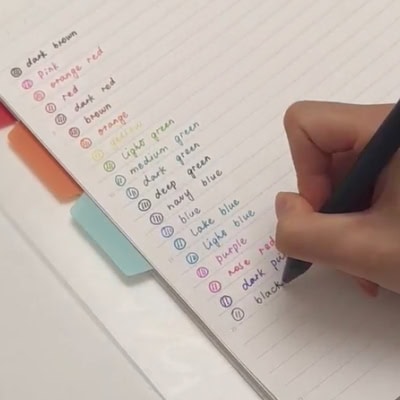 dark brown
pink
orange red
red
dark red
brown
orange
light green
medium green
dark green
deep green
navy blue
blue
lake blue
light blue
purple
rose red
dark pu
black